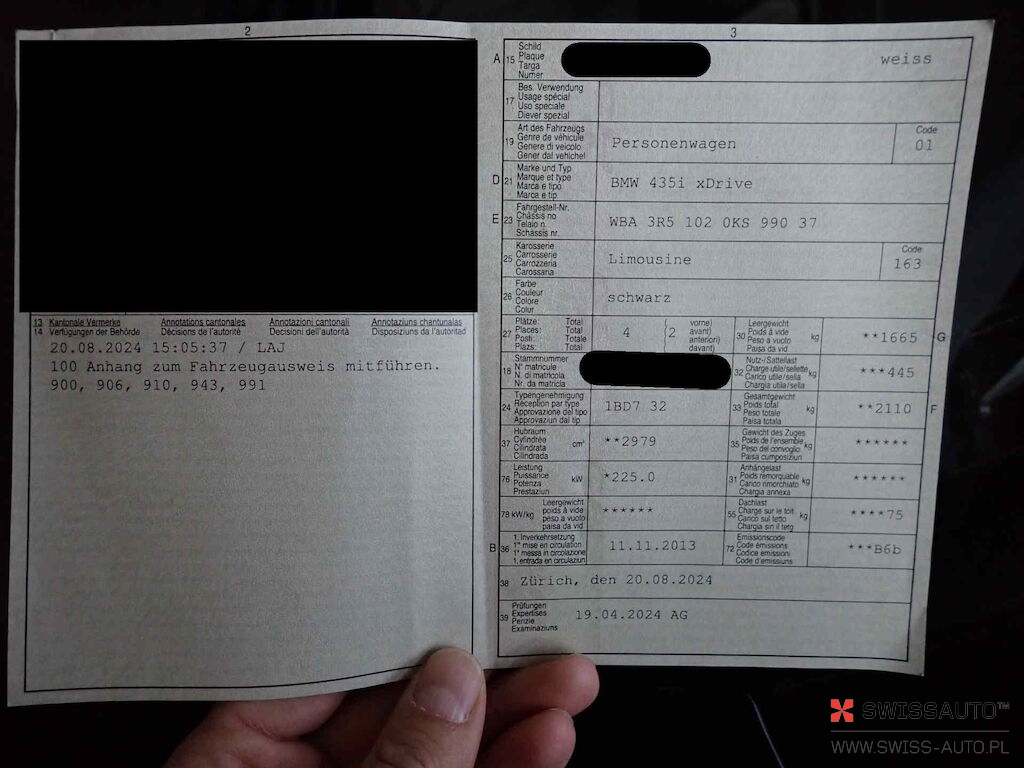 2
13 Kantonale Vermerke Annotations cantonales Annotazioni cantonali Annotaziuns chantunalas
14 Verfügungen der Behörde Décisions de l'autorité Decisioni dell'autorità Disposiziuns da l'autoritad
20.08.2024 15:05:37 / LAJ
100 Anhang zum Fahrzeugausweis mitführen.
900, 906, 910, 943, 991
3
A 15 Schild
Plaque
Targa
Numer
weiss
17 Bes. Verwendung
Usage spécial
Uso speciale
Diever spezial
19 Art des Fahrzeugs
Genre de véhicule
Genere di veicolo
Gener dal vehichel
Personenwagen
Code
01
D 21 Marke und Typ
Marque et type
Marca e tipo
Marca e tip
BMW 435i xDrive
E 23 Fahrgestell-Nr.
Châssis no
Telaio n.
Schassis nr.
WBA 3R5 102 0KS 990 37
25 Karosserie
Carrosserie
Carrozzeria
Carossaria
Limousine
Code
163
26 Farbe
Couleur
Colore
Colur
schwarz
27 Plätze: Total
Places: Total
Posti: Totale
Plazs: Total
4
(2 vorne)
avant)
anteriori)
davant)
30 Leergewicht
Poids à vide
Peso a vuoto
Paisa da vid
kg
**1665
G
18 Stammnummer
N° matricule
N. di matricola
Nr. da matricla
32 Nutz-/Sattellast
Charge utile/sellette
Carico utile/sella
Chargia utila/sella
kg
***445
24 Typengenehmigung
Réception par type
Approvazione del tipo
Approvaziun dal tip
1BD7 32
33 Gesamtgewicht
Poids total
Peso totale
Paisa totala
kg
**2110
F
37 Hubraum
Cylindrée
Cilindrata
Cilindrada
cm³
**2979
35 Gewicht des Zuges
Poids de l'ensemble
Peso del convoglio
Paisa cumposiziun
kg
******
76 Leistung
Puissance
Potenza
Prestaziun
kW
*225.0
31 Anhängelast
Poids remorquable
Carico rimorchiato
Chargia annexa
kg
******
78 kW/kg Leergewicht
poids à vide
peso a vuoto
paisa da vid
******
55 Dachlast
Charge sur le toit
Carico sul tetto
Chargia sin il tetg
kg
****75
B 36 1. Inverkehrsetzung
1re mise en circulation
1a messa in circolazione
1. entrada en circulaziun
11.11.2013
72 Emissionscode
Code émissions
Codice emissioni
Code d'emissiuns
***B6b
38 Zürich, den 20.08.2024
39 Prüfungen
Expertises
Perizie
Examinaziuns
19.04.2024 AG
SWISSAUTO™
WWW.SWISS-AUTO.PL